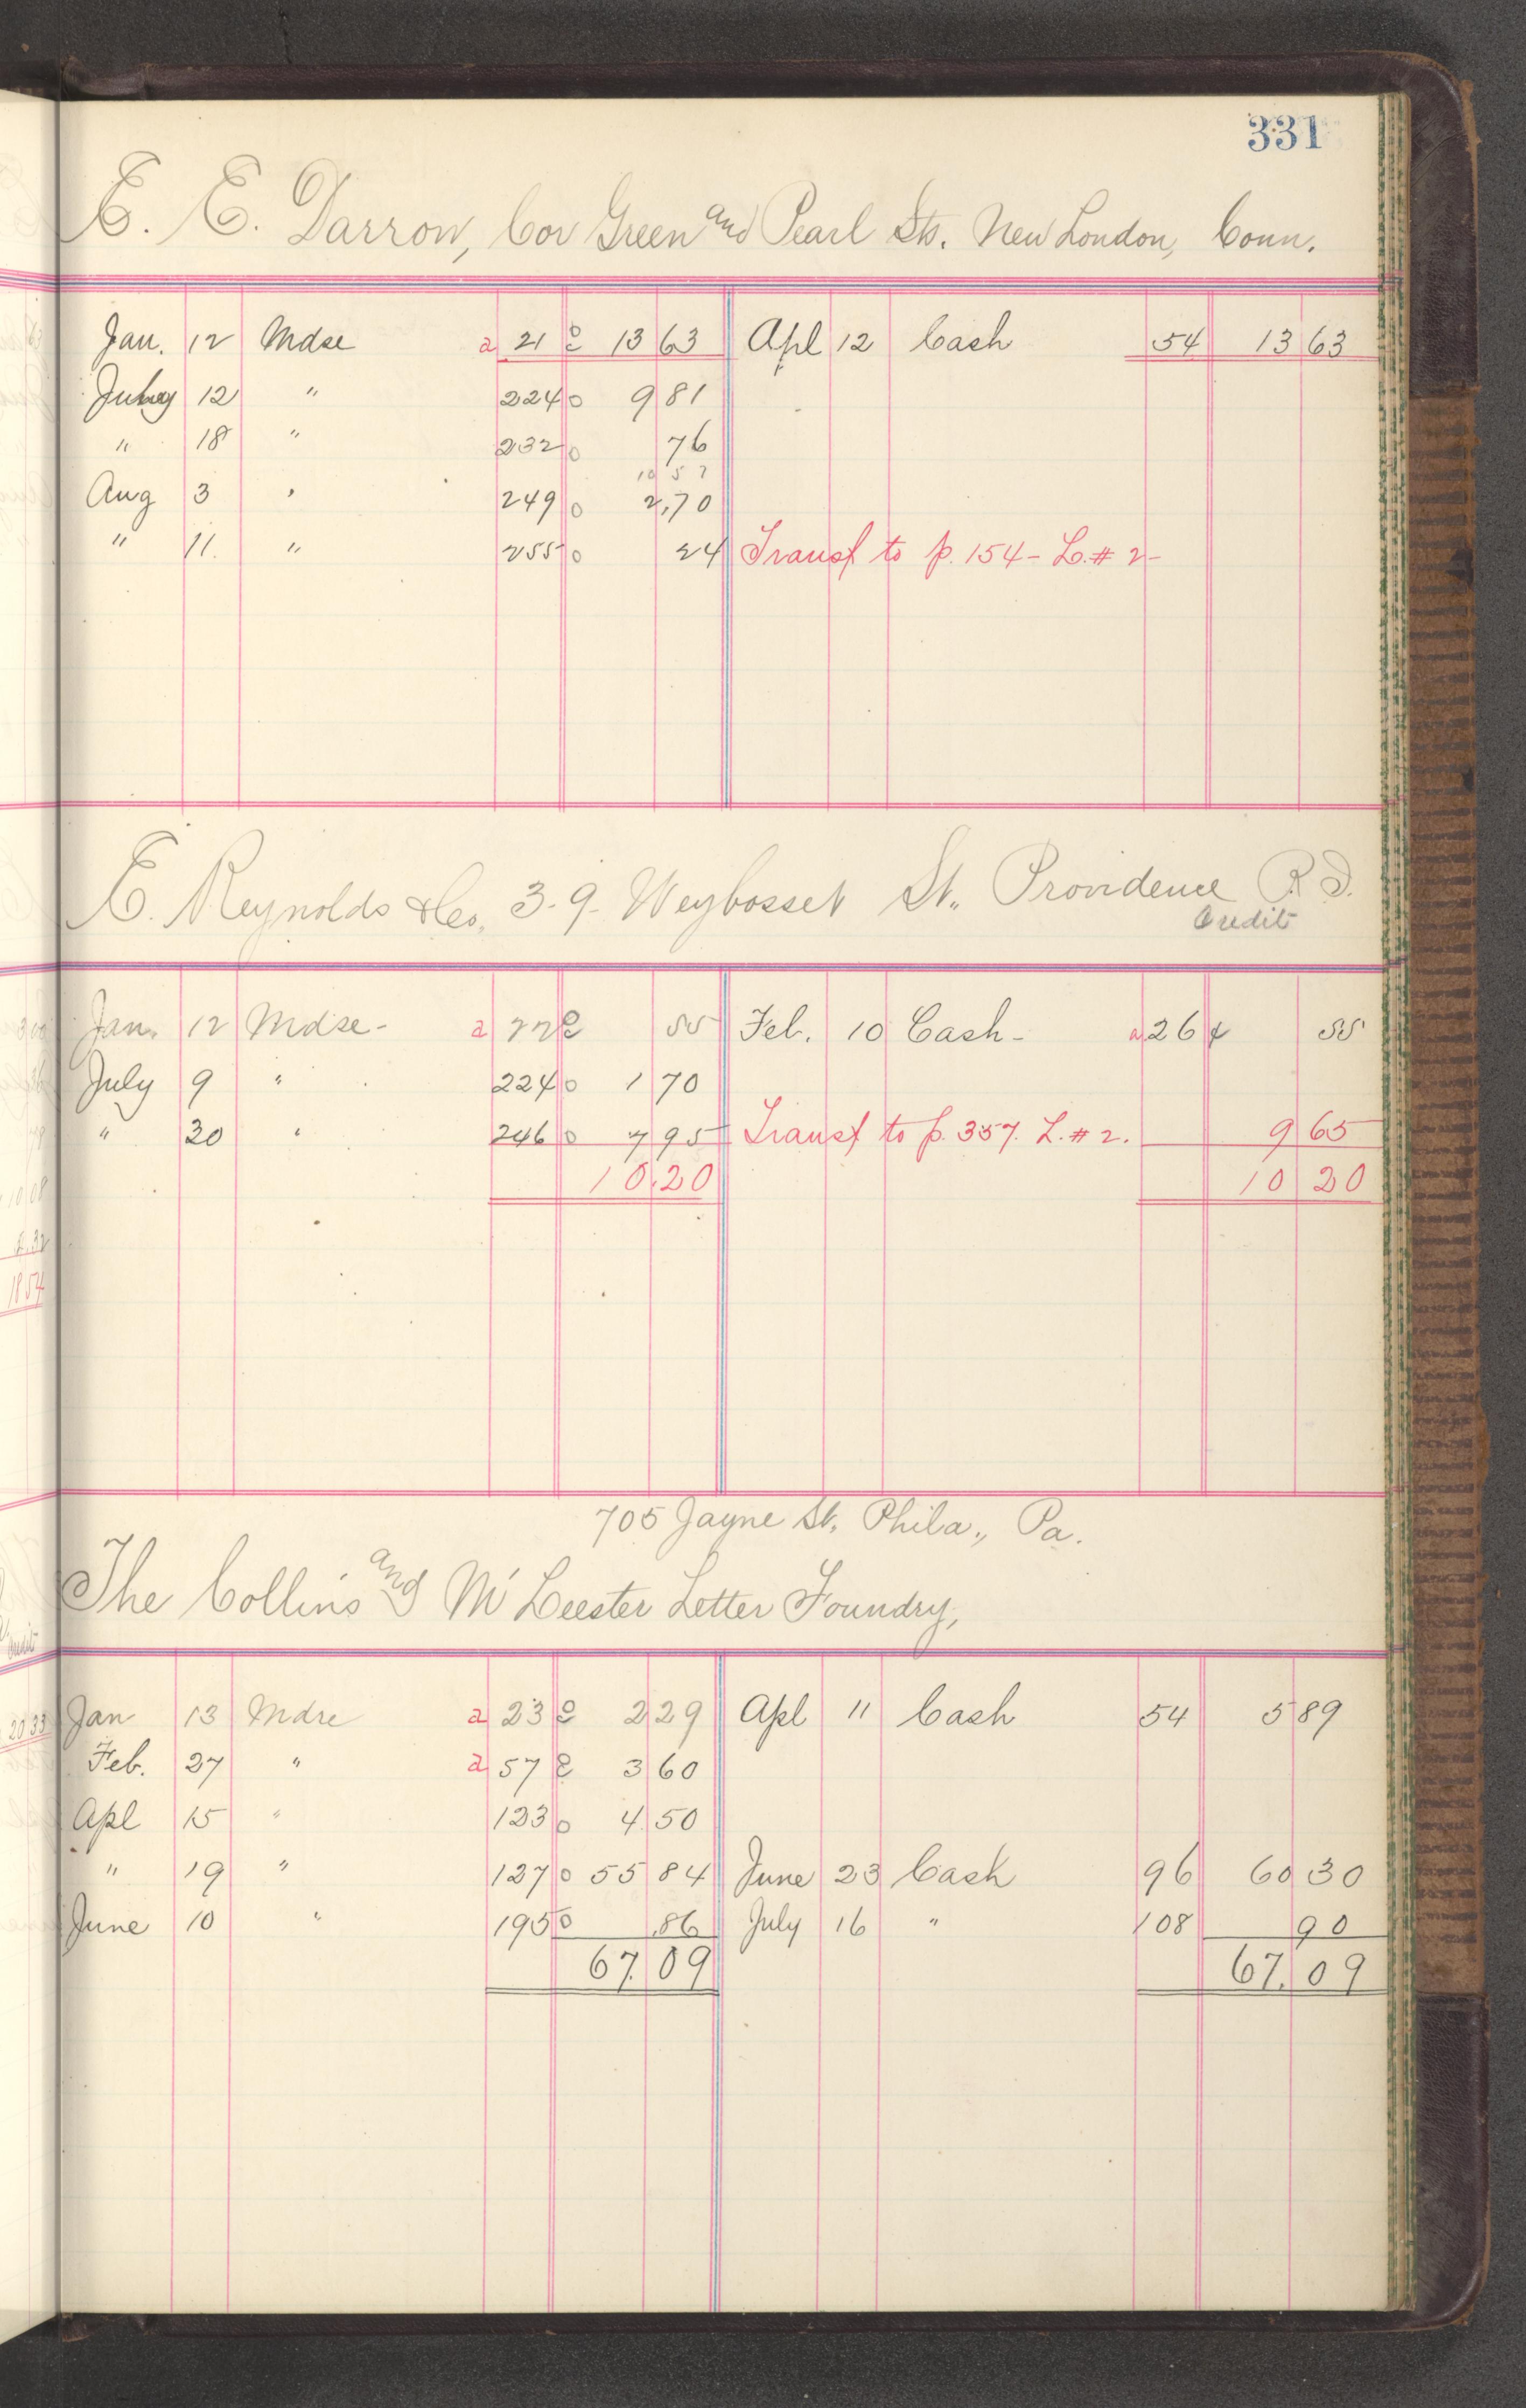 331
E. E. Darrow, Cor Green and Pearl Sts. New London, Conn.
Jan. 12 Mdse a 21 13 63 Apl 12 Cash 54 13 63
July 12 " 224 0 9 81
" 18 " 232 0 76
10 57
Aug 3 " 249 0 2,70
" 11. " 255 0 24 Transf to p. 154 - L. # 2 -
E. Reynolds & Co., 3-9- Weybosset St., Providence R. I.
Credit
Jan. 12 Mdse - a 22 55 Feb. 10 Cash - a 26 ¢ 55
July 9 " 224 0 1 70
" 30 " 246 0 7 95 Transf to p. 357. L. # 2. 9 65
10.20 10 20
705 Jayne St. Phila., Pa.
The Collins and Mc Leester Letter Foundry,
Jan 13 Mdse a 23 2 29 Apl 11 Cash 54 5 89
Feb. 27 " a 57 3 60
Apl 15 " 123 0 4 50
" 19 " 127 0 55 84 June 23 Cash 96 60 30
June 10 " 195 0 .86 July 16 " 108 90
67.09 67.09